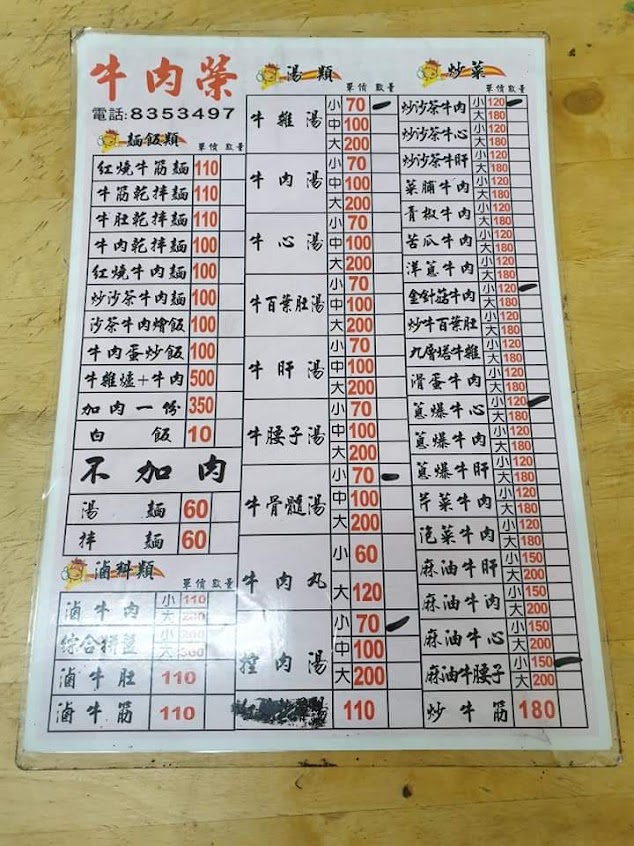 牛肉榮
電話:8353497
麵飯類 單價 數量
紅燒牛筋麵 110
牛筋乾拌麵 110
牛肚乾拌麵 110
牛肉乾拌麵 100
紅燒牛肉麵 100
炒沙茶牛肉麵 100
沙茶牛肉燴飯 100
牛肉蛋炒飯 100
牛雜爐+牛肉 500
加肉一份 350
白飯 10
不加肉
湯麵 60
拌麵 60
滷料類 單價 數量
滷牛肉 小 110
大 200
綜合拼盤 小 200
大 300
滷牛肚 110
滷牛筋 110
湯類 單價 數量
牛雜湯 小 70
中 100
大 200
牛肉湯 小 70
中 100
大 200
牛心湯 小 70
中 100
大 200
牛百葉肚湯 小 70
中 100
大 200
牛肝湯 小 70
中 100
大 200
牛腰子湯 小 70
中 100
大 200
牛骨髓湯 小 70
中 100
大 200
牛肉丸 小 60
大 120
控肉湯 小 70
中 100
大 200
110
炒菜 單價 數量
炒沙茶牛肉 小 120
大 180
炒沙茶牛心 小 120
大 180
炒沙茶牛肝 小 120
大 180
菜脯牛肉 小 120
大 180
青椒牛肉 小 120
大 180
苦瓜牛肉 小 120
大 180
洋蔥牛肉 小 120
大 180
金針菇牛肉 小 120
大 180
炒牛百葉肚 小 120
大 180
九層塔牛雜 小 120
大 180
滑蛋牛肉 小 120
大 180
蔥爆牛心 小 120
大 180
蔥爆牛肉 小 120
大 180
蔥爆牛肝 小 120
大 180
芹菜牛肉 小 120
大 180
泡菜牛肉 小 120
大 180
麻油牛肝 小 150
大 200
麻油牛肉 小 150
大 200
麻油牛心 小 150
大 200
麻油牛腰子 小 150
大 200
炒牛筋 180